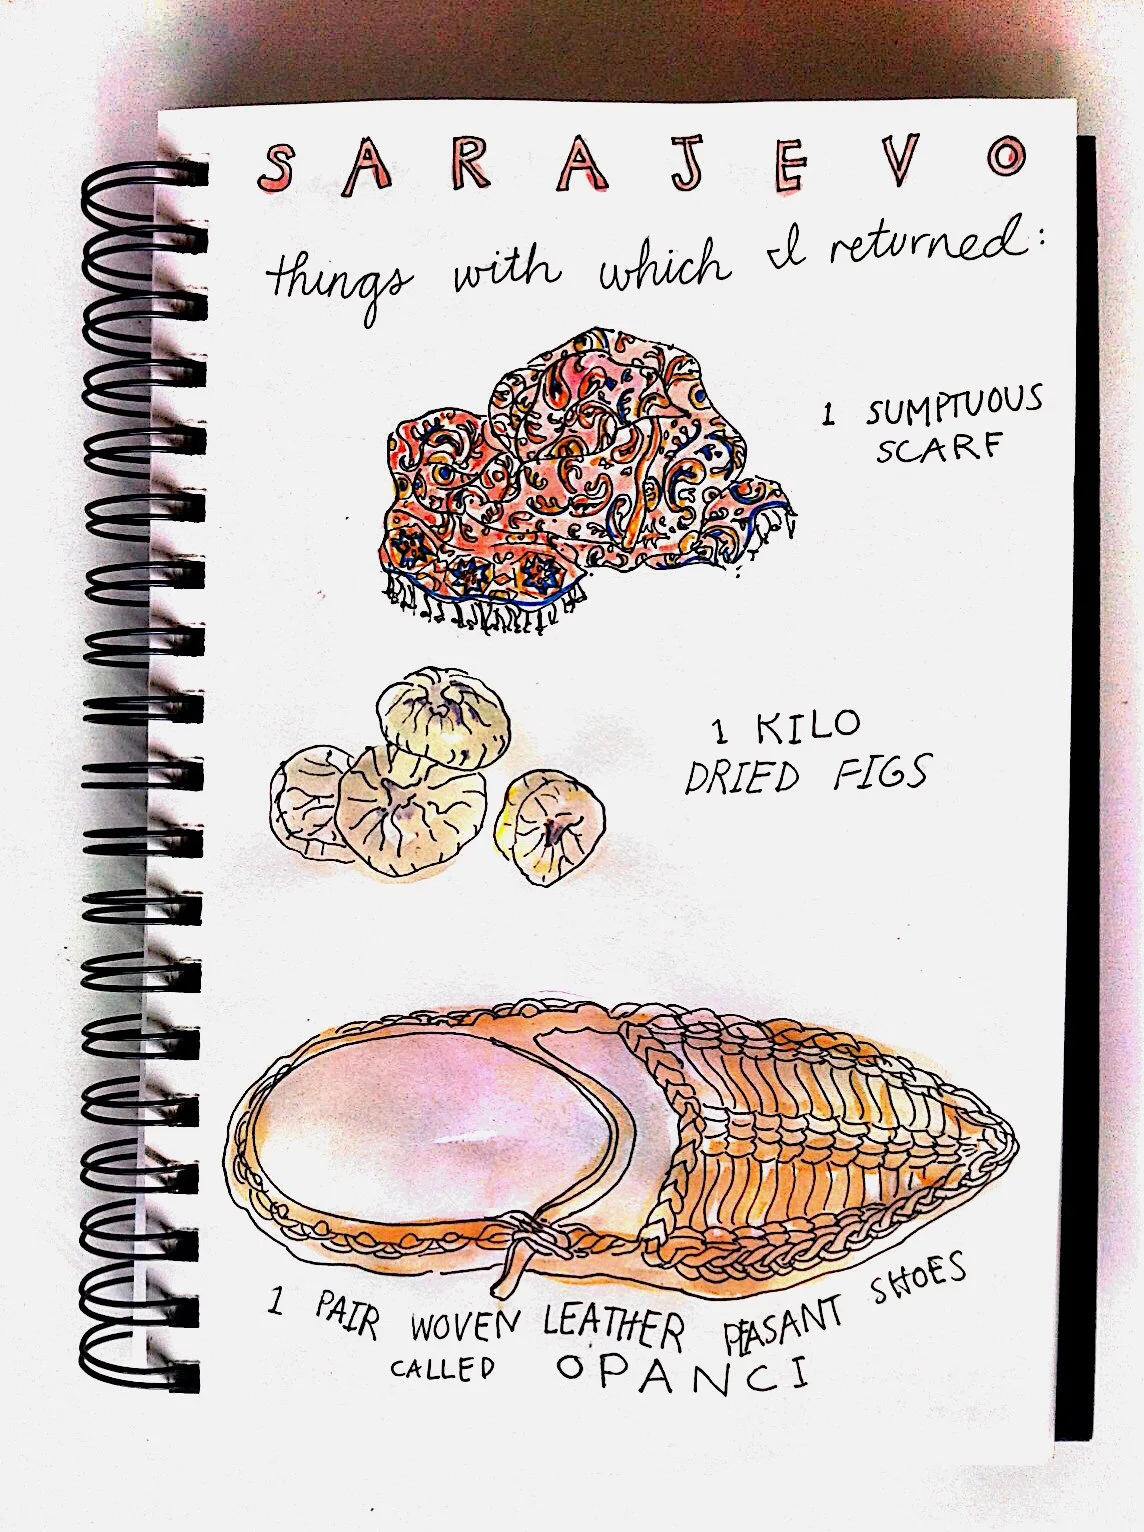 SARAJEVO
things with which I returned:
1 SUMPTUOUS
SCARF
1 KILO
DRIED FIGS
1 PAIR WOVEN LEATHER PEASANT SHOES
CALLED OPANCI